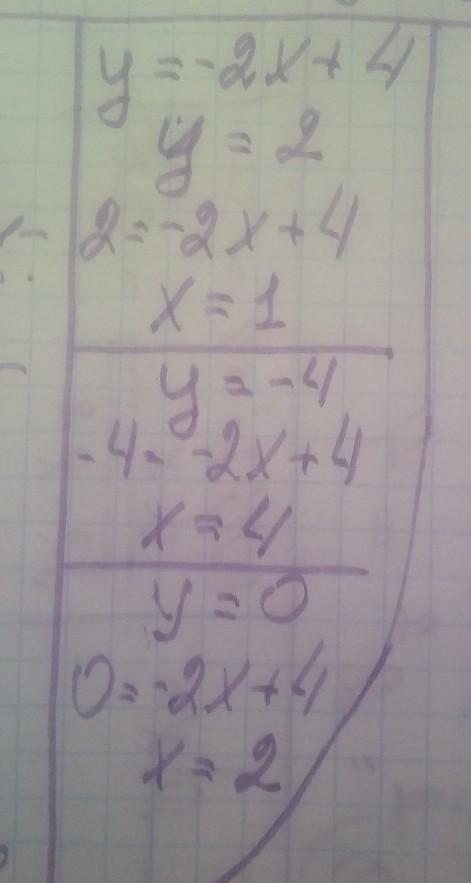 y = -2x + 4
y = 2
2 = -2x + 4
x = 1
y = -4
-4 = -2x + 4
x = 4
y = 0
0 = -2x + 4
x = 2